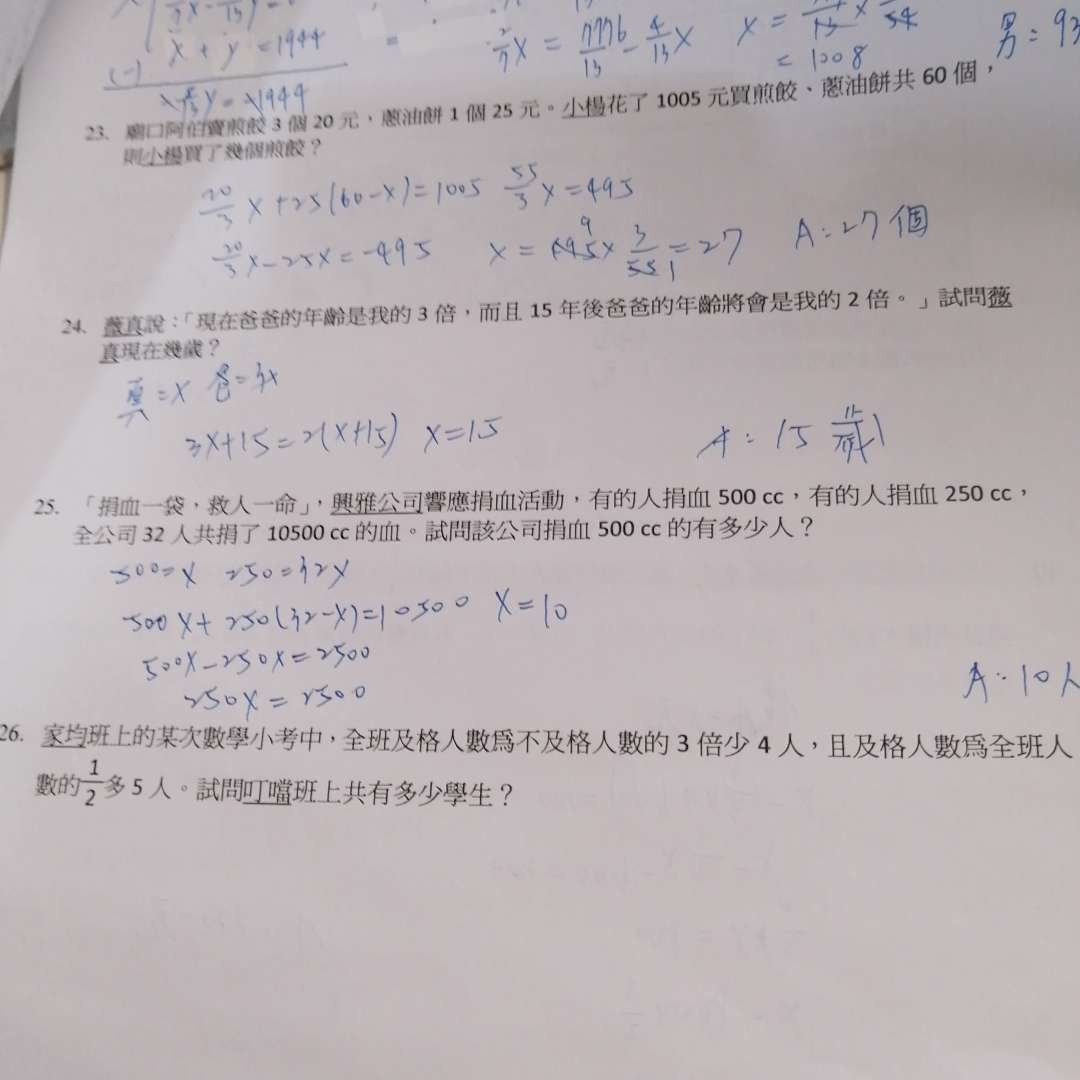 x + y = 1944
= 1008
男 = 93
23. 廟口阿伯賣煎餃 3 個 20 元，蔥油餅 1 個 25 元。小楊花了 1005 元買煎餃、蔥油餅共 60 個，
則小楊買了幾個煎餃？
20/3 x + 25(60-x) = 1005 55/3 x = 495
20/3 x - 25x = -495 x = 495 x 3/55 = 27 A: 27 個
24. 薇真說：「現在爸爸的年齡是我的 3 倍，而且 15 年後爸爸的年齡將會是我的 2 倍。」試問薇
真現在幾歲？
真 = x 爸 = 3x
3x+15 = 2(x+15) x = 15 A: 15 歲
25. 「捐血一袋，救人一命」，興雅公司響應捐血活動，有的人捐血 500 cc，有的人捐血 250 cc，
全公司 32 人共捐了 10500 cc 的血。試問該公司捐血 500 cc 的有多少人？
500 = x 250 = 32x
500x + 250(32-x) = 10500 x = 10
500x - 250x = 2500
250x = 2500 A: 10人
26. 家均班上的某次數學小考中，全班及格人數為不及格人數的 3 倍少 4 人，且及格人數為全班人
數的 1/2 多 5 人。試問叮噹班上共有多少學生？